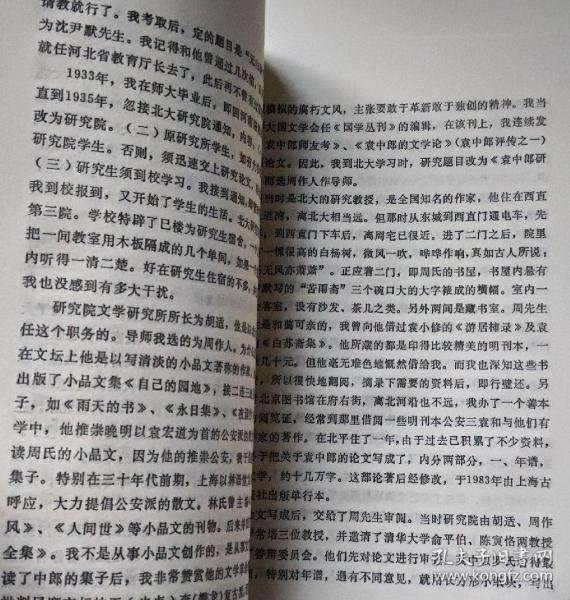 请教就行了。我考取后，定的题目是
为沈尹默先生。我记得和他曾通过几次
就任河北省教育厅长去了，此后再不
1933年，我在师大毕业后，即回河南
直到1935年，忽接北大研究院通知，内
改为研究院。（二）原研究所学生，如
研究院学生。否则，须迅速交上研究论文，
（三）研究生须到校学习。我接到通知，即
我到校报到，又开始了学生的生活。北大
第三院。学校特辟了巳楼为研究生宿舍，一
把一间教室用木板隔成的几个单间，如
内听得一清二楚。好在研究生住宿的不多，
我也没感到有多大干扰。
研究院文学研究所所长为胡适，他是以
任这个职务的。导师我选的为周作人。为什
在文坛上他是以写清淡的小品文著称的作家，
出版了小品文集《自己的园地》，接二连三
子，如《雨天的书》、《永日集》、《夜读
学中，他推崇晚明以袁宏道为首的公安派的
读周氏的小品文，因为他的推崇公安，
集子。特别在三十年代前期，上海以林语堂
呼应，大力提倡公安派的散文。林氏曾主
风》、《人间世》等小品文的刊物。后来
全集》。我不是从事小品文创作的，是从事
读了中郎的集子后，我非常赞赏他的文学革
模拟的腐朽文风，主张要敢于革新敢于独创的精神。我当
大国文学会任《国学丛刊》的编辑，在该刊上，我连续发
袁中郎师友考》、《袁中郎的文学论》（袁中郎评传之一）
论文。因此，我到北大学习时，研究题目改为《袁中郎研
而选周作人作导师。
当时是北大的研究教授，是全国知名的作家，他住在西直
道湾，离北大相当远。但那时从东城到西直门通电车，先
到西直门下车后，离周宅已很近。进了二门之后，院里
一棵很高的白杨树，微风一吹，哗哗作响，真如古人所说：
无风亦萧萧”。正应着二门，即周氏的书屋，书屋内悬有
默写的“苦雨斋”三个碗口大的大字裱成的横幅。室内一
客室，设有沙发、茶几之类。另外两间是藏书室。周先生
是和蔼可亲的，我曾向他借过袁小修的《游居柿录》及袁
《白苏斋集》。他所藏的都是印得比较精美的明刊本，一
几十元。但他毫无难色地慨然借给我。而我也深知这些书
，所以很快地翻阅，摘录下需要的资料后，即行璧还。另
北京图书馆在府右街，离北河沿也不远，我办了一个善本
阅览证，经常到那里借阅一些明刊本公安三袁和与他们有
家的著作。在北平住了一年，由于过去已积累了不少资料，
于把关于袁中郎的论文写成了，内分两部分，一、年谱，
文学，约十几万字。这部论著后经修改，于1983年由上海古
社出版单行本。
文写成后，交给了周先生审阅。当时研究院由胡适、周作
常培三位教授，并邀请了清华大学俞平伯、陈寅恪两教授
答辩委员会。他们先对论文进行审阅。其中
，特别对年谱，遇有不同意见，就用长方形小